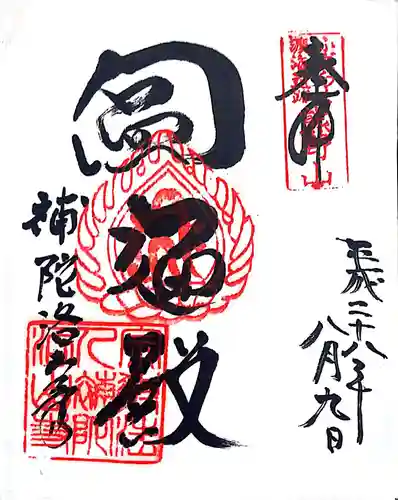 奉拝
平成二十八年
八月九日
圓通殿
補陀洛山寺